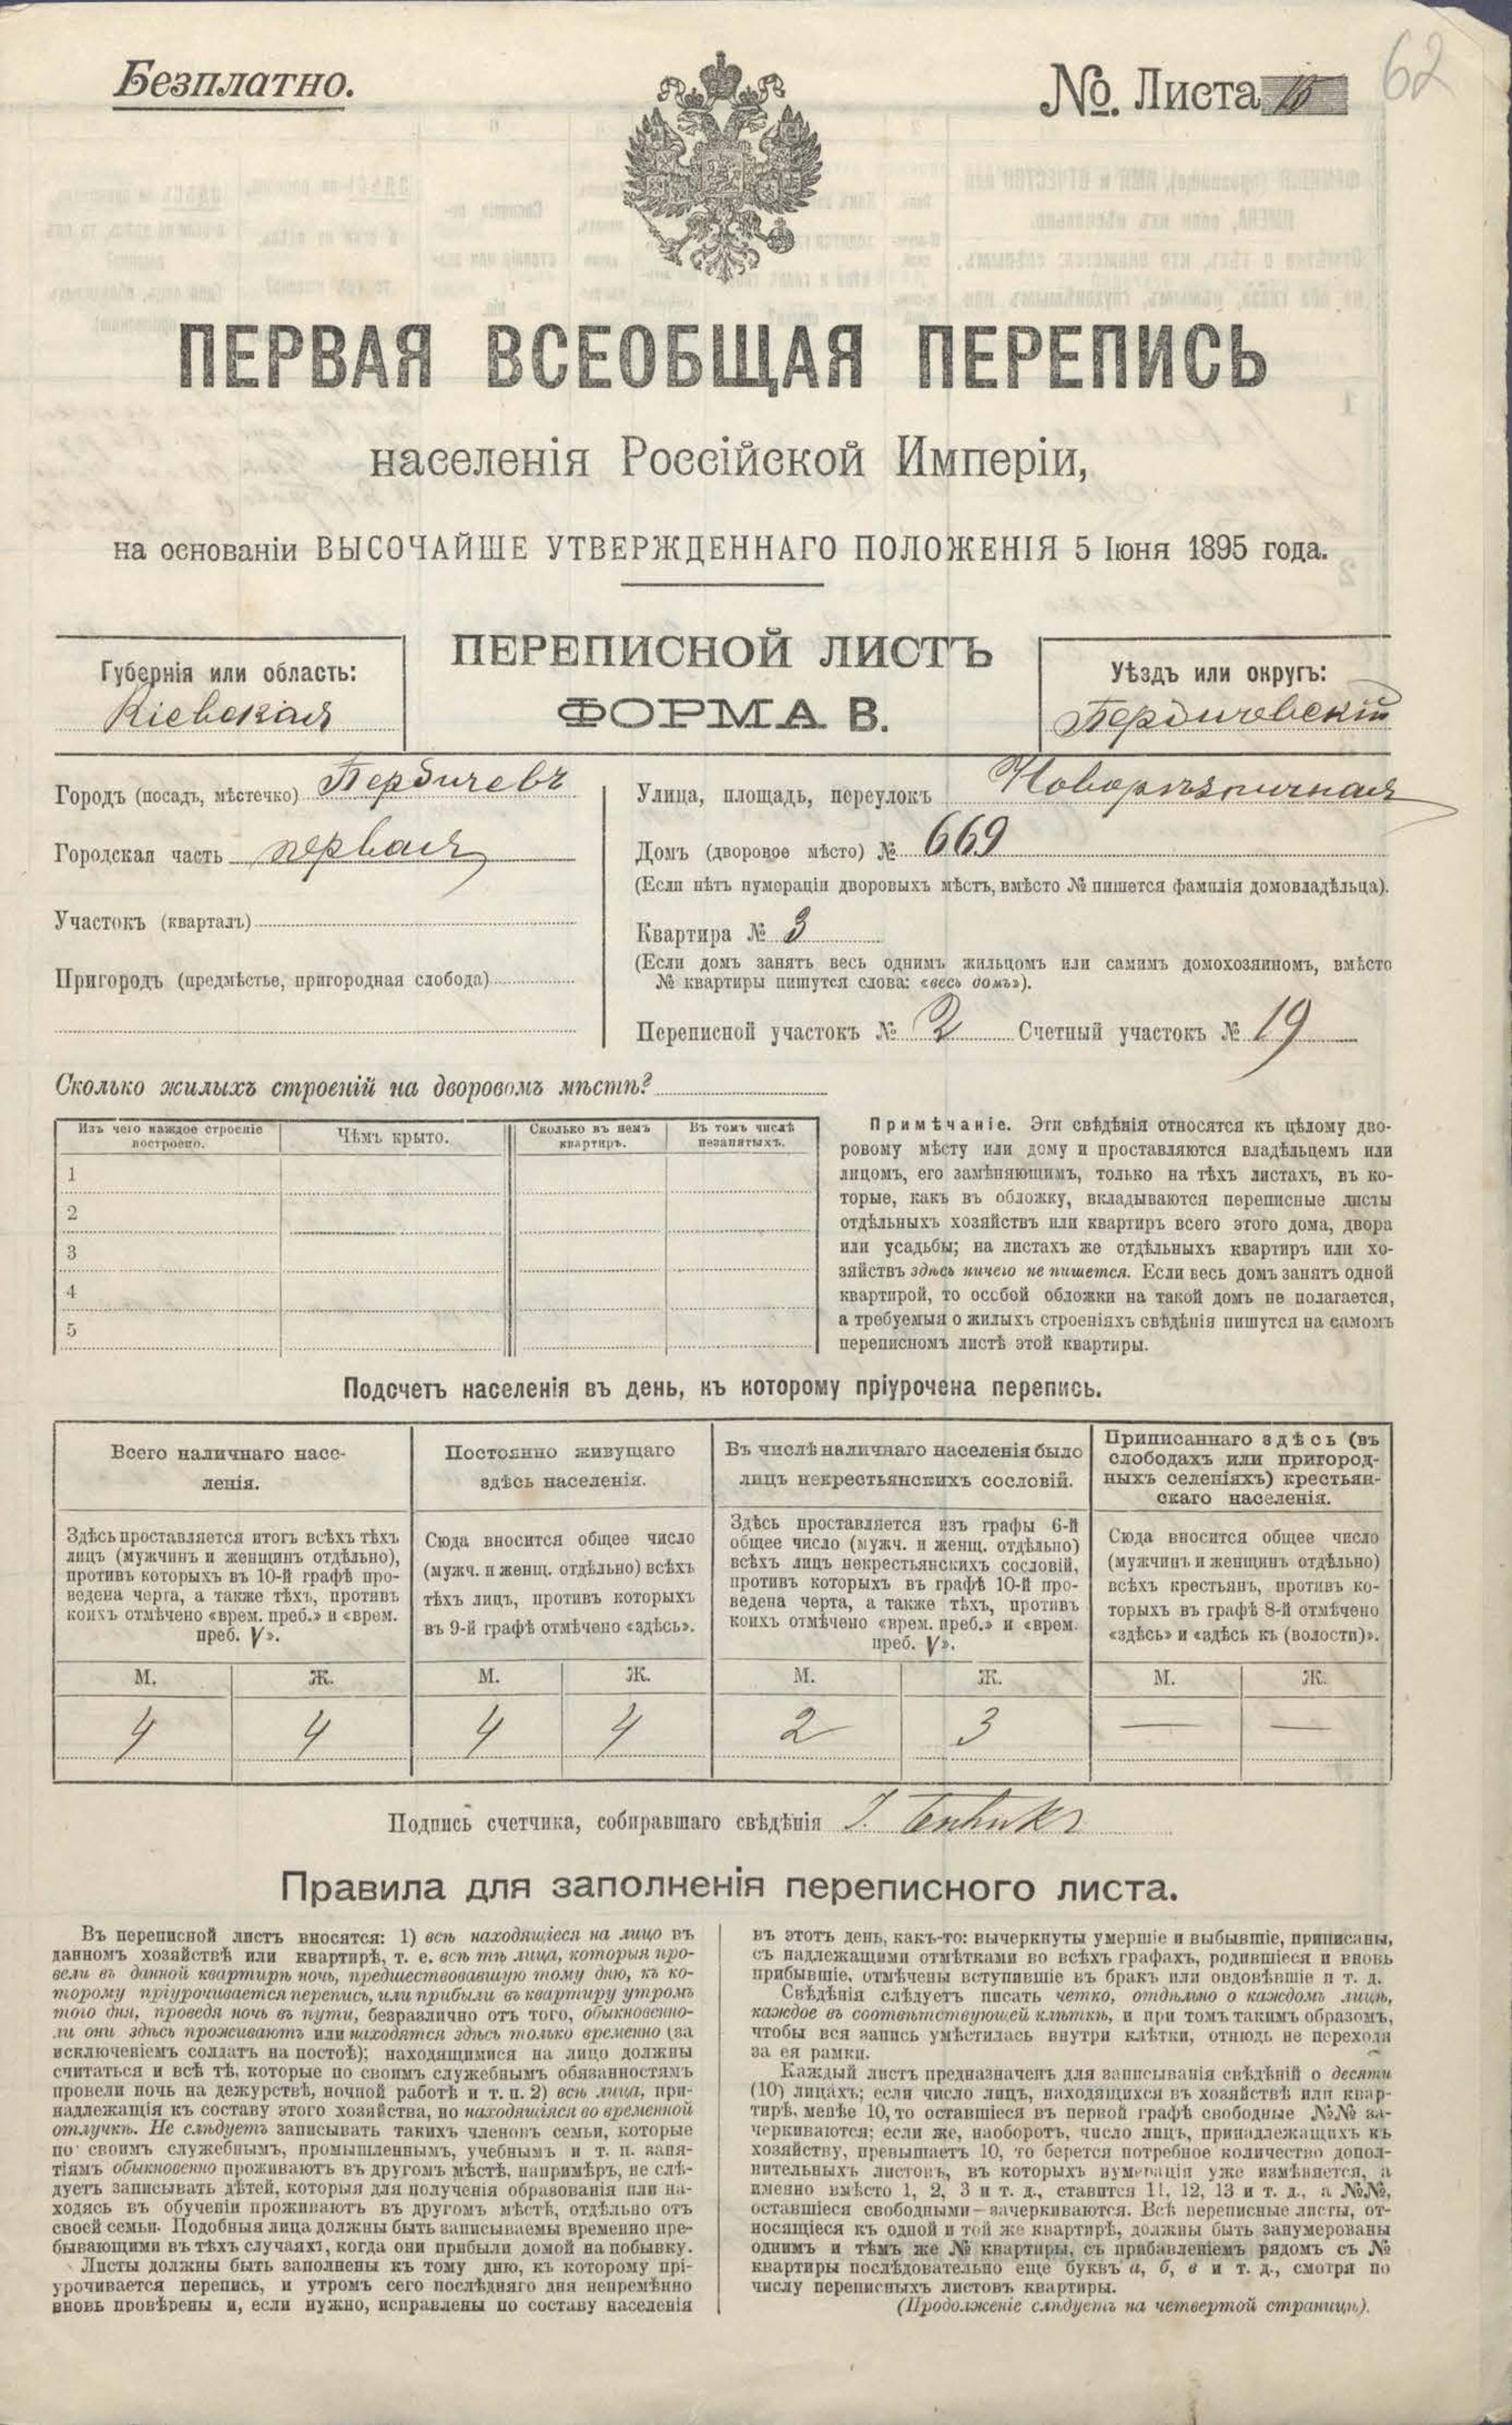 Безплатно.
№ Листа
62
ПЕРВАЯ ВСЕОБЩАЯ ПЕРЕПИСЬ
населенія Россійской Имперіи,
на основаніи ВЫСОЧАЙШЕ УТВЕРЖДЕННАГО ПОЛОЖЕНІЯ 5 Іюня 1895 года.
Губернія или область:
Кіевская
ПЕРЕПИСНОЙ ЛИСТЪ
ФОРМА В.
Уѣздъ или округъ:
Бердичевскій
Городъ (посадъ, мѣстечко) Бердичевъ
Городская часть первая
Участокъ (кварталъ)
Пригородъ (предмѣстье, пригородная слобода)
Улица, площадь, переулокъ
Домъ (дворовое мѣсто) № 669
(Если нѣтъ нумераціи дворовыхъ мѣстъ, вмѣсто № пишется фамилія домовладѣльца).
Квартира № 3
(Если домъ занятъ весь однимъ жильцомъ или самимъ домохозяиномъ, вмѣсто
№ квартиры пишутся слова: «весь домъ»).
Переписной участокъ № 2 Счетный участокъ № 19
Сколько жилыхъ строеній на дворовомъ мѣстѣ?
Изъ чего каждое строеніе
построено.
Чѣмъ крыто.
Сколько въ немъ
квартиръ.
Въ томъ числѣ
незанятыхъ.
1
2
3
4
5
Примѣчаніе. Эти свѣдѣнія относятся къ цѣлому дво-
ровому мѣсту или дому и проставляются владѣльцемъ или
лицомъ, его замѣняющимъ, только на тѣхъ листахъ, въ ко-
торые, какъ въ обложку, вкладываются переписные листы
отдѣльныхъ хозяйствъ или квартиръ всего этого дома, двора
или усадьбы; на листахъ же отдѣльныхъ квартиръ или хо-
зяйствъ здѣсь ничего не пишется. Если весь домъ занятъ одной
квартирой, то особой обложки на такой домъ не полагается,
а требуемыя о жилыхъ строеніяхъ свѣдѣнія пишутся на самомъ
переписномъ листѣ этой квартиры.
Подсчетъ населенія въ день, къ которому пріурочена перепись.
Всего наличнаго насе-
ленія.
Постоянно живущаго
здѣсь населенія.
Въ числѣ наличнаго населенія было
лицъ некрестьянскихъ сословій.
Приписаннаго здѣсь (въ
слободахъ или пригород-
ныхъ селеніяхъ) крестьян-
скаго населенія.
Здѣсь проставляется итогъ всѣхъ тѣхъ
лицъ (мужчинъ и женщинъ отдѣльно),
противъ которыхъ въ 10-й графѣ про-
ведена черта, а также тѣхъ, противъ
коихъ отмѣчено «врем. преб.» и «врем.
преб. V».
Сюда вносится общее число
(мужч. и женщ. отдѣльно) всѣхъ
тѣхъ лицъ, противъ которыхъ
въ 9-й графѣ отмѣчено «здѣсь».
Здѣсь проставляется изъ графы 6-й
общее число (мужч. и женщ. отдѣльно)
всѣхъ лицъ некрестьянскихъ сословій,
противъ которыхъ въ графѣ 10-й про-
ведена черта, а также тѣхъ, противъ
коихъ отмѣчено «врем. преб.» и «врем.
преб. V».
Сюда вносится общее число
(мужчинъ и женщинъ отдѣльно)
всѣхъ крестьянъ, противъ ко-
торыхъ въ графѣ 8-й отмѣчено
«здѣсь» и «здѣсь къ (волости)».
М. Ж. М. Ж. М. Ж. М. Ж.
4 4 4 4 2 3 — —
Подпись счетчика, собиравшаго свѣдѣнія
Правила для заполненія переписного листа.
Въ переписной листъ вносятся: 1) всѣ находящіеся на лицо въ
данномъ хозяйствѣ или квартирѣ, т. е. всѣ тѣ лица, которыя про-
вели въ данной квартирѣ ночь, предшествовавшую тому дню, къ ко-
торому пріурочивается перепись, или прибыли въ квартиру утромъ
того дня, проведя ночь въ пути, безразлично отъ того, обыкновенно-
ли они здѣсь проживаютъ или находятся здѣсь только временно (за
исключеніемъ солдатъ на постоѣ); находящимися на лицо должны
считаться и всѣ тѣ, которые по своимъ служебнымъ обязанностямъ
провели ночь на дежурствѣ, ночной работѣ и т. п. 2) всѣ лица, при-
надлежащія къ составу этого хозяйства, но находящіяся во временной
отлучкѣ. Не слѣдуетъ записывать такихъ членовъ семьи, которые
по своимъ служебнымъ, промышленнымъ, учебнымъ и т. п. заня-
тіямъ обыкновенно проживаютъ въ другомъ мѣстѣ, напримѣръ, не слѣ-
дуетъ записывать дѣтей, которыя для полученія образованія или на-
ходясь въ обученіи проживаютъ въ другомъ мѣстѣ, отдѣльно отъ
своей семьи. Подобныя лица должны быть записываемы временно пре-
бывающими въ тѣхъ случаяхъ, когда они прибыли домой на побывку.
Листы должны быть заполнены къ тому дню, къ которому прі-
урочивается перепись, и утромъ сего послѣдняго дня непремѣнно
вновь провѣрены и, если нужно, исправлены по составу населенія
въ этотъ день, какъ-то: вычеркнуты умершіе и выбывшіе, приписаны,
съ надлежащими отмѣтками во всѣхъ графахъ, родившіеся и вновь
прибывшіе, отмѣчены вступившіе въ бракъ или овдовѣвшіе и т. д.
Свѣдѣнія слѣдуетъ писать четко, отдѣльно о каждомъ лицѣ,
каждое въ соотвѣтствующей клѣткѣ, и при томъ такимъ образомъ,
чтобы вся запись умѣстилась внутри клѣтки, отнюдь не переходя
за ея рамки.
Каждый листъ предназначенъ для записыванія свѣдѣній о десяти
(10) лицахъ; если число лицъ, находящихся въ хозяйствѣ или квар-
тирѣ, менѣе 10, то оставшіеся въ первой графѣ свободные №№ за-
черкиваются; если же, наоборотъ, число лицъ, принадлежащихъ къ
хозяйству, превышаетъ 10, то берется потребное количество допол-
нительныхъ листовъ, въ которыхъ нумерація уже измѣняется, а
именно вмѣсто 1, 2, 3 и т. д., ставится 11, 12, 13 и т. д., а №№,
оставшіеся свободными—зачеркиваются. Всѣ переписные листы, от-
носящіеся къ одной и той же квартирѣ, должны быть занумерованы
однимъ и тѣмъ же № квартиры, съ прибавленіемъ рядомъ съ №
квартиры послѣдовательно еще буквъ а, б, в и т. д., смотря по
числу переписныхъ листовъ квартиры.
(Продолженіе слѣдуетъ на четвертой страницѣ).